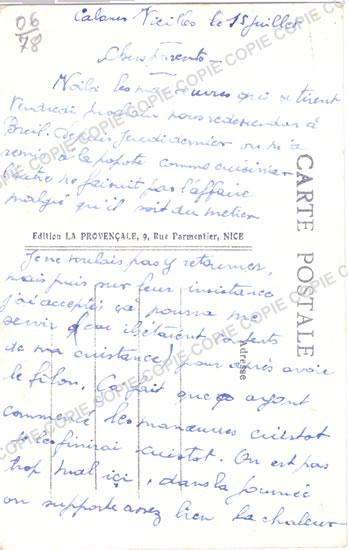 06
78
Cabanes Vieilles le 15 Juillet
Chers Parents
Voilà les manœuvres qui se tirent
Vendredi prochain nous redescendons à
Breil. Depuis Jeudi dernier on m'a
remis à la popote comme cuisinier
l'autre ne faisait pas l'affaire
malgré qu'il soit du métier
Edition LA PROVENÇALE, 9, Rue Parmentier, NICE
CARTE POSTALE
Adresse
Je ne voulais pas y retourner,
mais puis sur leur insistance
j'ai accepté, ça pourra me
servir (car ils étaient contents
de ma cuistance) pour après avoir
le filon. Ça fait que ayant
commencé les manœuvres cuistot
je finirai cuistot. On est pas
trop mal içi, dans la journée
on supporte assez bien la chaleur
COPIE COPIE COPIE COPIE COPIE COPIE